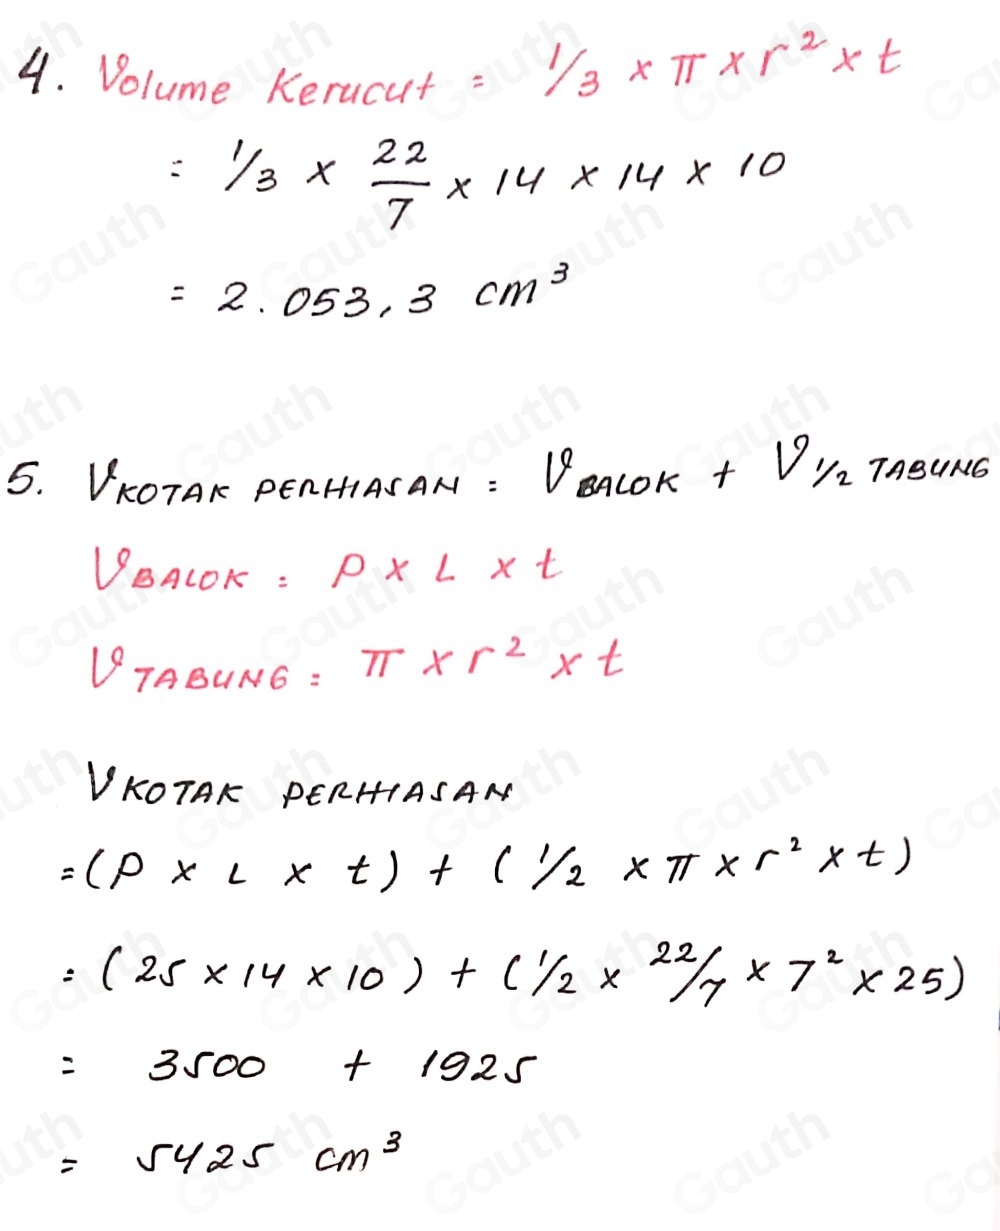 4. Volume Kerucut = 1/3 × π × r² × t
= 1/3 × 22/7 × 14 × 14 × 10
= 2.053,3 cm³
5. V KOTAK PERHIASAN = V BALOK + V 1/2 TABUNG
V BALOK = P × L × t
V TABUNG = π × r² × t
V KOTAK PERHIASAN
= (P × L × t) + (1/2 × π × r² × t)
= (25 × 14 × 10) + (1/2 × 22/7 × 7² × 25)
= 3500 + 1925
= 5425 cm³